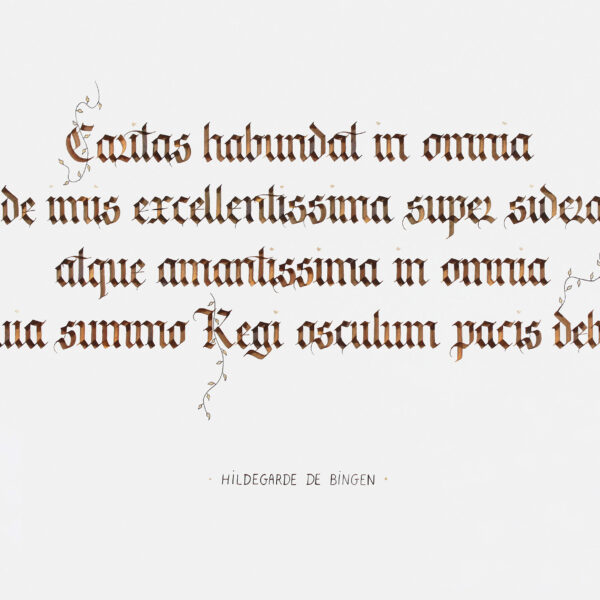 Caritas habundat in omnia
de imis excellentissima super sidera
atque amantissima in omnia
uia summo Regi osculum pacis deb
· HILDEGARDE DE BINGEN ·